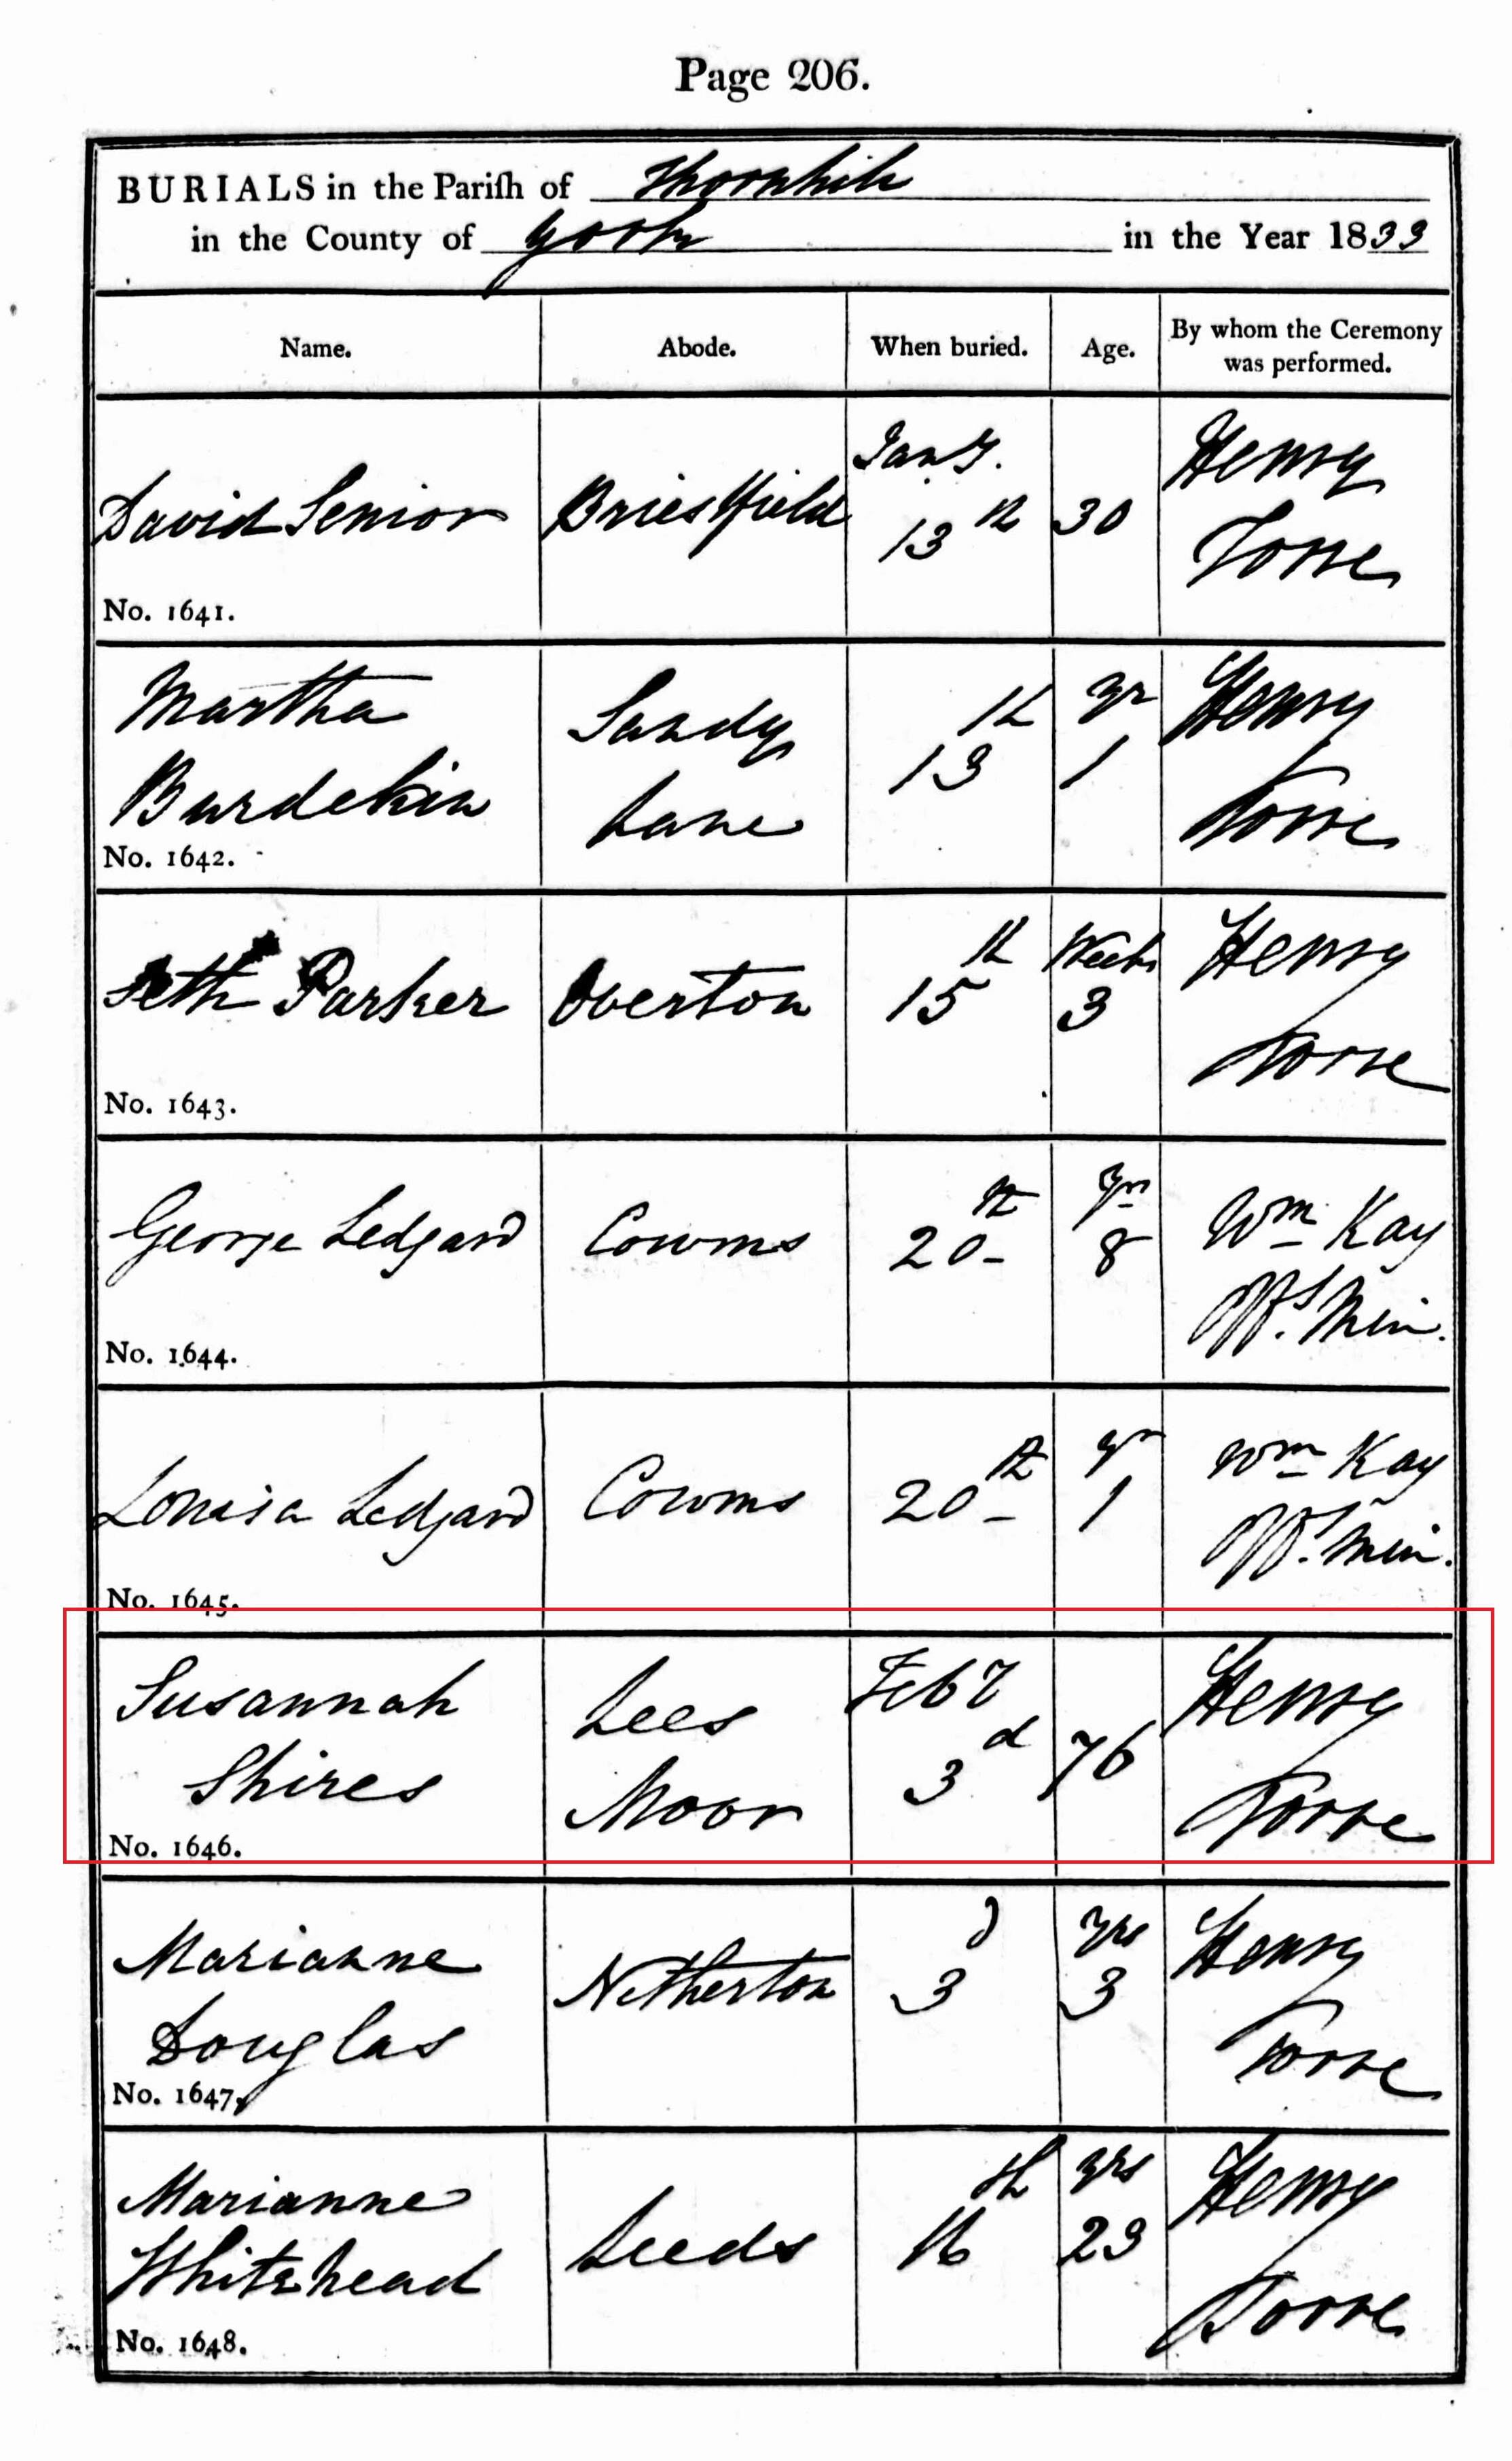 Page 206.
BURIALS in the Parish of Thornhill
in the County of York in the Year 1833
Name. Abode. When buried. Age. By whom the Ceremony was performed.
David Senior Briestfield Jany. 13th 30 Henry Torre
No. 1641.
Martha Burdekin Sandy Lane 13th yr 1 Henry Torre
No. 1642.
Seth Parker Overton 15th Weeks 3 Henry Torre
No. 1643.
George Ledgard Cowms 20th yrs 8 Wm Kay Min.
No. 1644.
Louisa Ledgard Cowms 20th yr 1 Wm Kay Min.
No. 1645.
Susannah Shires Lees Moor Feby 3d 76 Henry Torre
No. 1646.
Marianne Douglas Netherton 3d yrs 3 Henry Torre
No. 1647.
Marianne Whitehead Leeds 16th yrs 23 Henry Torre
No. 1648.